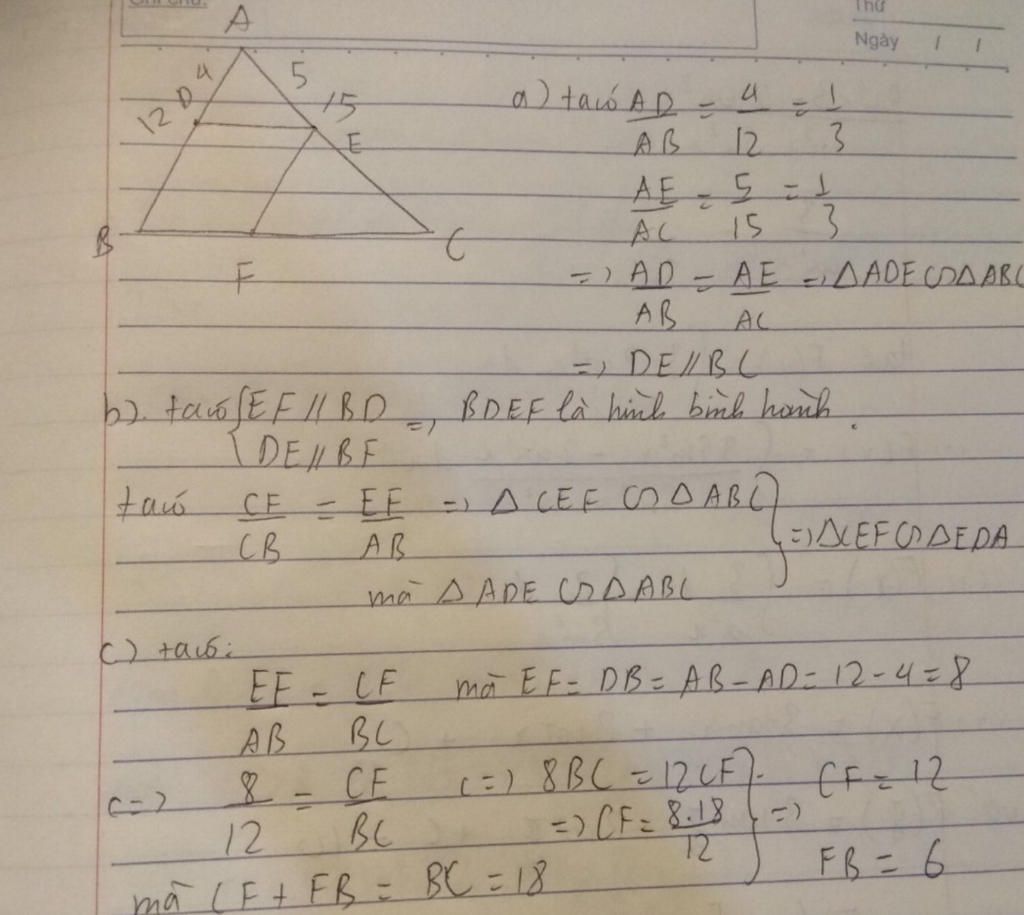 Ghi chú:
Thứ
Ngày / /
A
4
5
12
D
15
E
B
F
C
a) ta có AD/AB = 4/12 = 1/3
AE/AC = 5/15 = 1/3
=> AD/AB = AE/AC => ΔADE ∽ ΔABC
=> DE // BC
b). ta có { EF // BD
DE // BF => BDEF là hình bình hành.
ta có CF/CB = EF/AB => ΔCEF ∽ ΔABC
mà ΔADE ∽ ΔABC } => ΔCEF ∽ ΔEDA
c) ta có:
EF/AB = CF/BC mà EF = DB = AB - AD = 12 - 4 = 8
<=> 8/12 = CF/BC <=> 8BC = 12CF
=> CF = 8.18/12
mà CF + FB = BC = 18 } => CF = 12
FB = 6